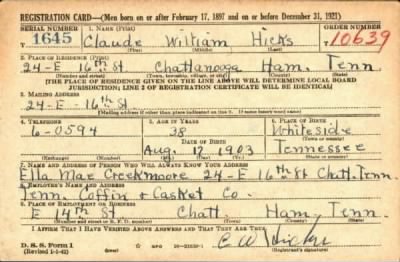 REGISTRATION CARD—(Men born on or after February 17, 1897 and on or before December 31, 1921)
SERIAL NUMBER 1. NAME (Print) ORDER NUMBER
1645 Claude William Hicks 10639
(First) (Middle) (Last)
2. PLACE OF RESIDENCE (Print)
24-E 16th St Chattanooga Ham. Tenn
(Number and street) (Town, township, village, or city) (County) (State)
[THE PLACE OF RESIDENCE GIVEN ON THE LINE ABOVE WILL DETERMINE LOCAL BOARD
JURISDICTION; LINE 2 OF REGISTRATION CERTIFICATE WILL BE IDENTICAL]
3. MAILING ADDRESS
24-E-16th St
[Mailing address if other than place indicated on line 2. If same insert word same]
4. TELEPHONE 5. AGE IN YEARS 6. PLACE OF BIRTH
6-0594 38 Whiteside
DATE OF BIRTH (Town or county)
Aug. 17 1903 Tennessee
(Exchange) (Number) (Mo.) (Day) (Yr.) (State or country)
7. NAME AND ADDRESS OF PERSON WHO WILL ALWAYS KNOW YOUR ADDRESS
Ella Mae Creekmoore 24-E 16th St Chatt. Tenn.
8. EMPLOYER'S NAME AND ADDRESS
Tenn. Coffin & Casket Co.
9. PLACE OF EMPLOYMENT OR BUSINESS
E 14th St Chatt. Ham. Tenn.
(Number and street or R. F. D. number) (Town) (County) (State)
I AFFIRM THAT I HAVE VERIFIED ABOVE ANSWERS AND THAT THEY ARE TRUE.
D. S. S. Form 1 GPO C W Hicks
(Revised 1-1-42) (Registrant's signature)